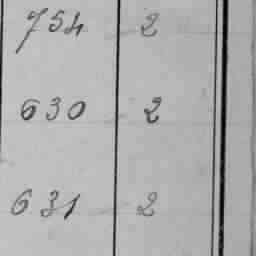 754 2
630 2
631 2